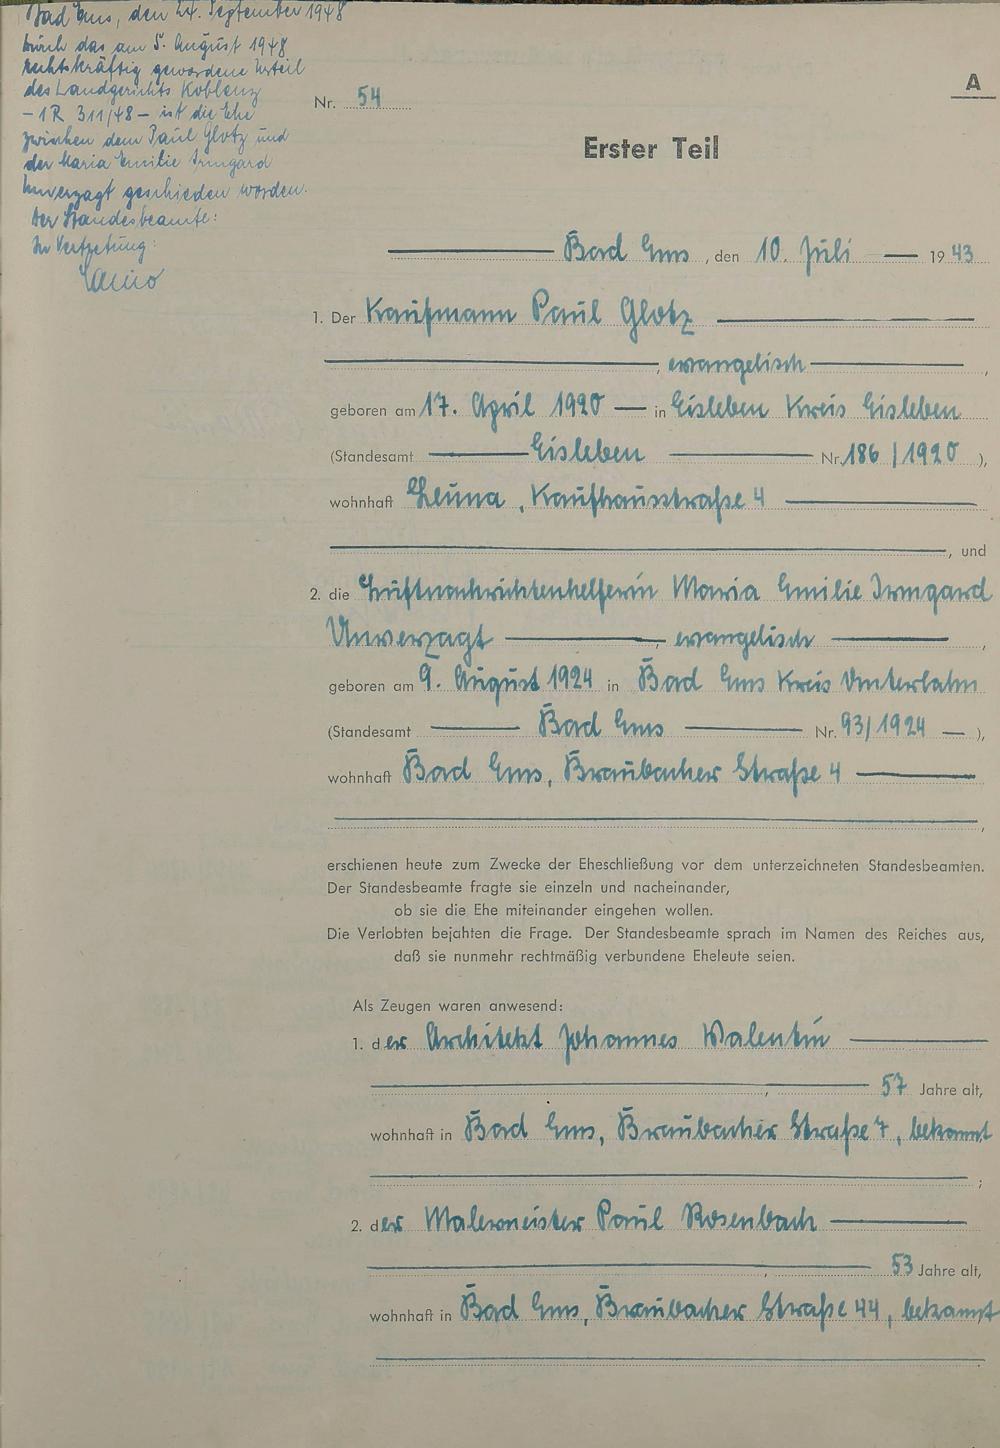 Bad Ems, den 24. September 1948
Durch das am 5. August 1948
rechtskräftig gewordene Urteil
des Landgerichts Koblenz
- 1 R 311/48 - ist die Ehe
zwischen dem Paul Glotz und
der Maria Emilie Irmgard
Unverzagt geschieden worden.
Der Standesbeamte:
In Vertretung:
A
Nr. 54
Erster Teil
Bad Ems, den 10. Juli 1943
1. Der Kaufmann Paul Glotz
, evangelisch ,
geboren am 17. April 1920 in Eisleben Kreis Eisleben
(Standesamt Eisleben Nr. 186/1920 ),
wohnhaft Leuna, Kaufhausstraße 4
, und
2. die Luftnachrichtenhelferin Maria Emilie Irmgard
Unverzagt , evangelisch ,
geboren am 9. August 1924 in Bad Ems Kreis Unterlahn
(Standesamt Bad Ems Nr. 93/1924 ),
wohnhaft Bad Ems, Braubacher Straße 4
,
erschienen heute zum Zwecke der Eheschließung vor dem unterzeichneten Standesbeamten.
Der Standesbeamte fragte sie einzeln und nacheinander,
ob sie die Ehe miteinander eingehen wollen.
Die Verlobten bejahten die Frage. Der Standesbeamte sprach im Namen des Reiches aus,
daß sie nunmehr rechtmäßig verbundene Eheleute seien.
Als Zeugen waren anwesend:
1. der Architekt Johannes Walentin
, 57 Jahre alt,
wohnhaft in Bad Ems, Braubacher Straße 7, bekannt
;
2. der Malermeister Paul Rosenbach
, 53 Jahre alt,
wohnhaft in Bad Ems, Braubacher Straße 44, bekannt